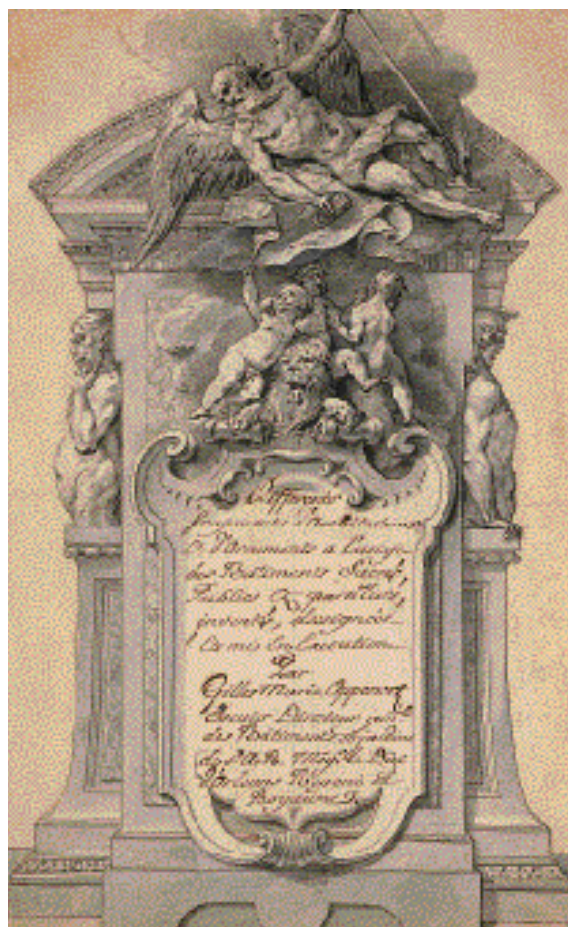 Differents
fragments d'architecture
& d'Ornements a L'usage
des Batiments Sacrés,
Publics & particuliers,
inventés, dessignés
Et mis En Execution
Par
Gilles Marie Oppenort
Directeur
des Batiments et Jardins
de S.A.R. Mgr. le Duc
d'Orleans Regent du
Royaume